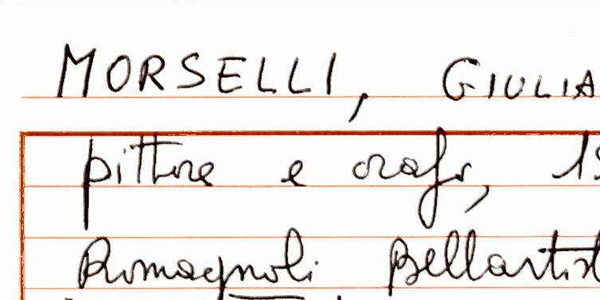 MORSELLI, GIULIA
pittore e orafo, 19
Romagnoli Bellartist